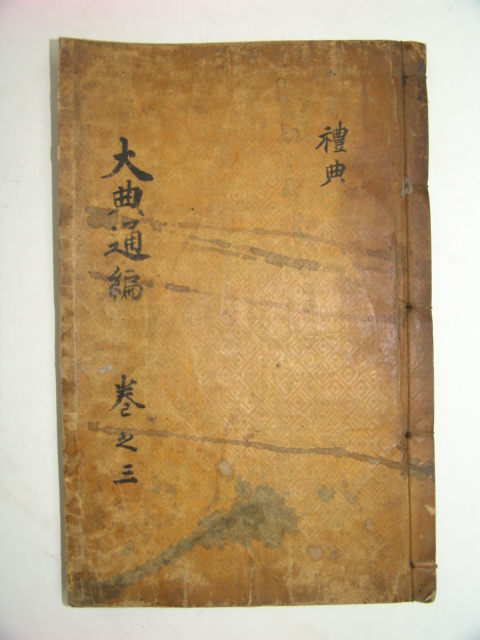 禮典
大典通編 卷之三